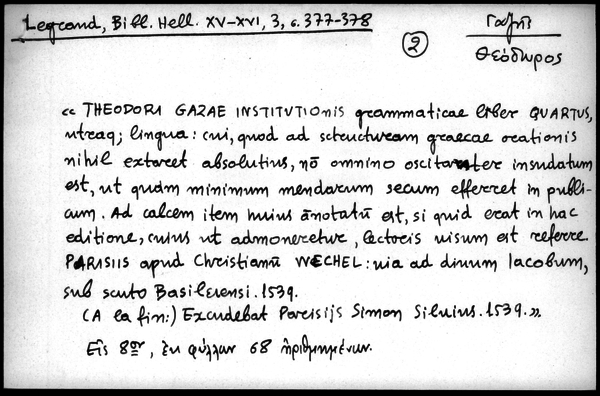 Legrand, Bibl. Hell. XV-XVI, 3, σ. 377-378
② Γαζῆς
Θεόδωρος
« THEODORI GAZAE INSTITVTIOnis grammaticae liber QUARTUS,
utraq; lingua: cui, quod ad structuram graecae orationis
nihil extaret absolutius, nō omnino oscitanter insudatum
est, ut quàm minimum mendarum secum efferret in publi-
cum. Ad calcem item huius ānotatū est, si quid erat in hac
editione, cuius ut admoneretur, lectoris uisum est referre.
PARISIIS apud Christianū WECHEL: uia ad diuum Iacobum,
sub scuto Basileiensi. 1539.
(A la fin:) Excudebat Parisijs Simon Siluius. 1539.».
Εἰς 8ον, ἐκ φύλλων 68 ἠριθμημένων.